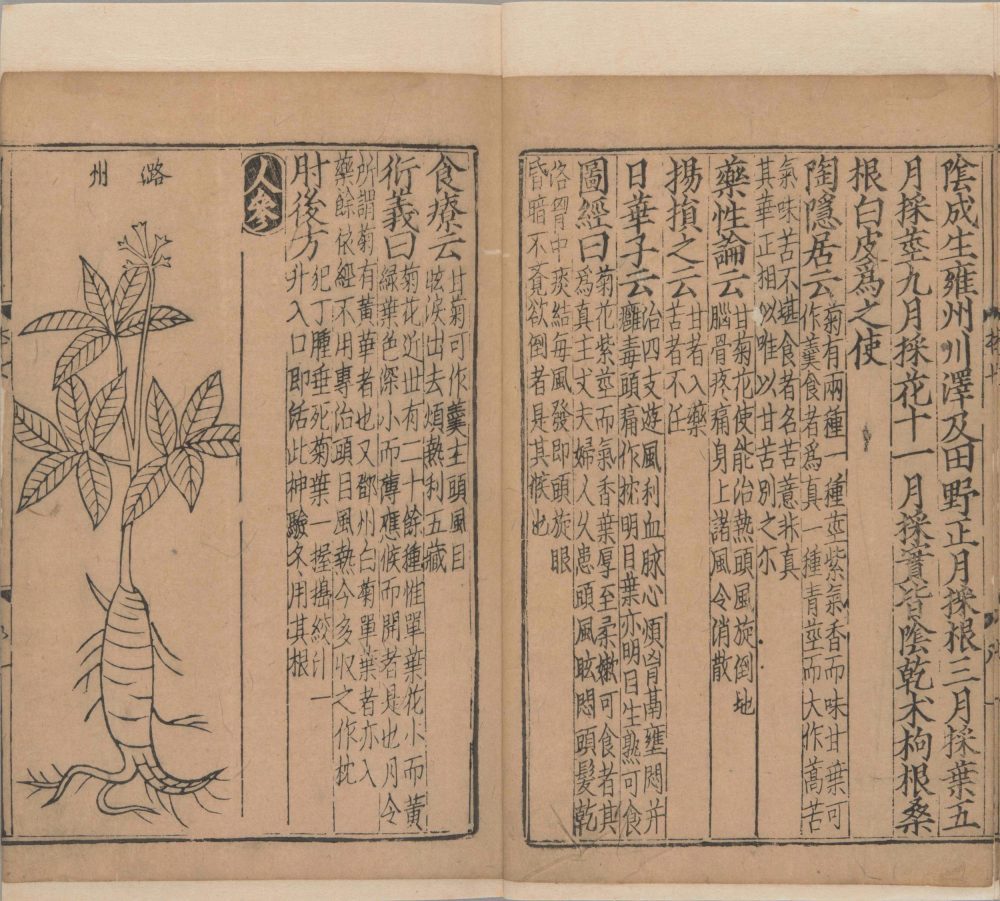 陰成生雍州川澤及田野正月採根三月採葉五
月採莖九月採花十一月採實皆陰乾术枸根桑
根白皮爲之使
陶隱居云菊有兩種一種莖紫氣香而味甘葉可
作羹食者爲真一種青莖而大作蒿苦
氣味苦不堪食者名苦薏非真
其華正相似唯以甘苦别之尒
藥性論云甘菊花使能治熱頭風旋倒地
腦骨疼痛身上諸風令消散
揚損之云甘者入藥
苦者不任
日華子云治四支遊風利血脉心煩胷膈壅悶并
癰毒頭痛作枕明目葉亦明目生熟可食
圖經曰菊花紫莖而氣香葉厚至柔嫰可食者其
爲真主丈夫婦人久患頭風眩悶頭髮乾
落胷中痰結毎風發即頭旋眼
昏暗不覺欲倒者是其候也
食療云甘菊可作羹主頭風目
眩淚出去煩熱利五藏
衍義曰菊花近世有二十餘種惟單葉花小而黃
綠葉色深小而薄應候而開者是也月令
所謂菊有黃華者也又鄧州白菊單葉者亦入
藥餘依經不用專治頭目風熱今多収之作枕
肘後方犯丁腫垂死菊葉一握搗絞汁一
升入口即活此神驗冬用其根
人參
潞州